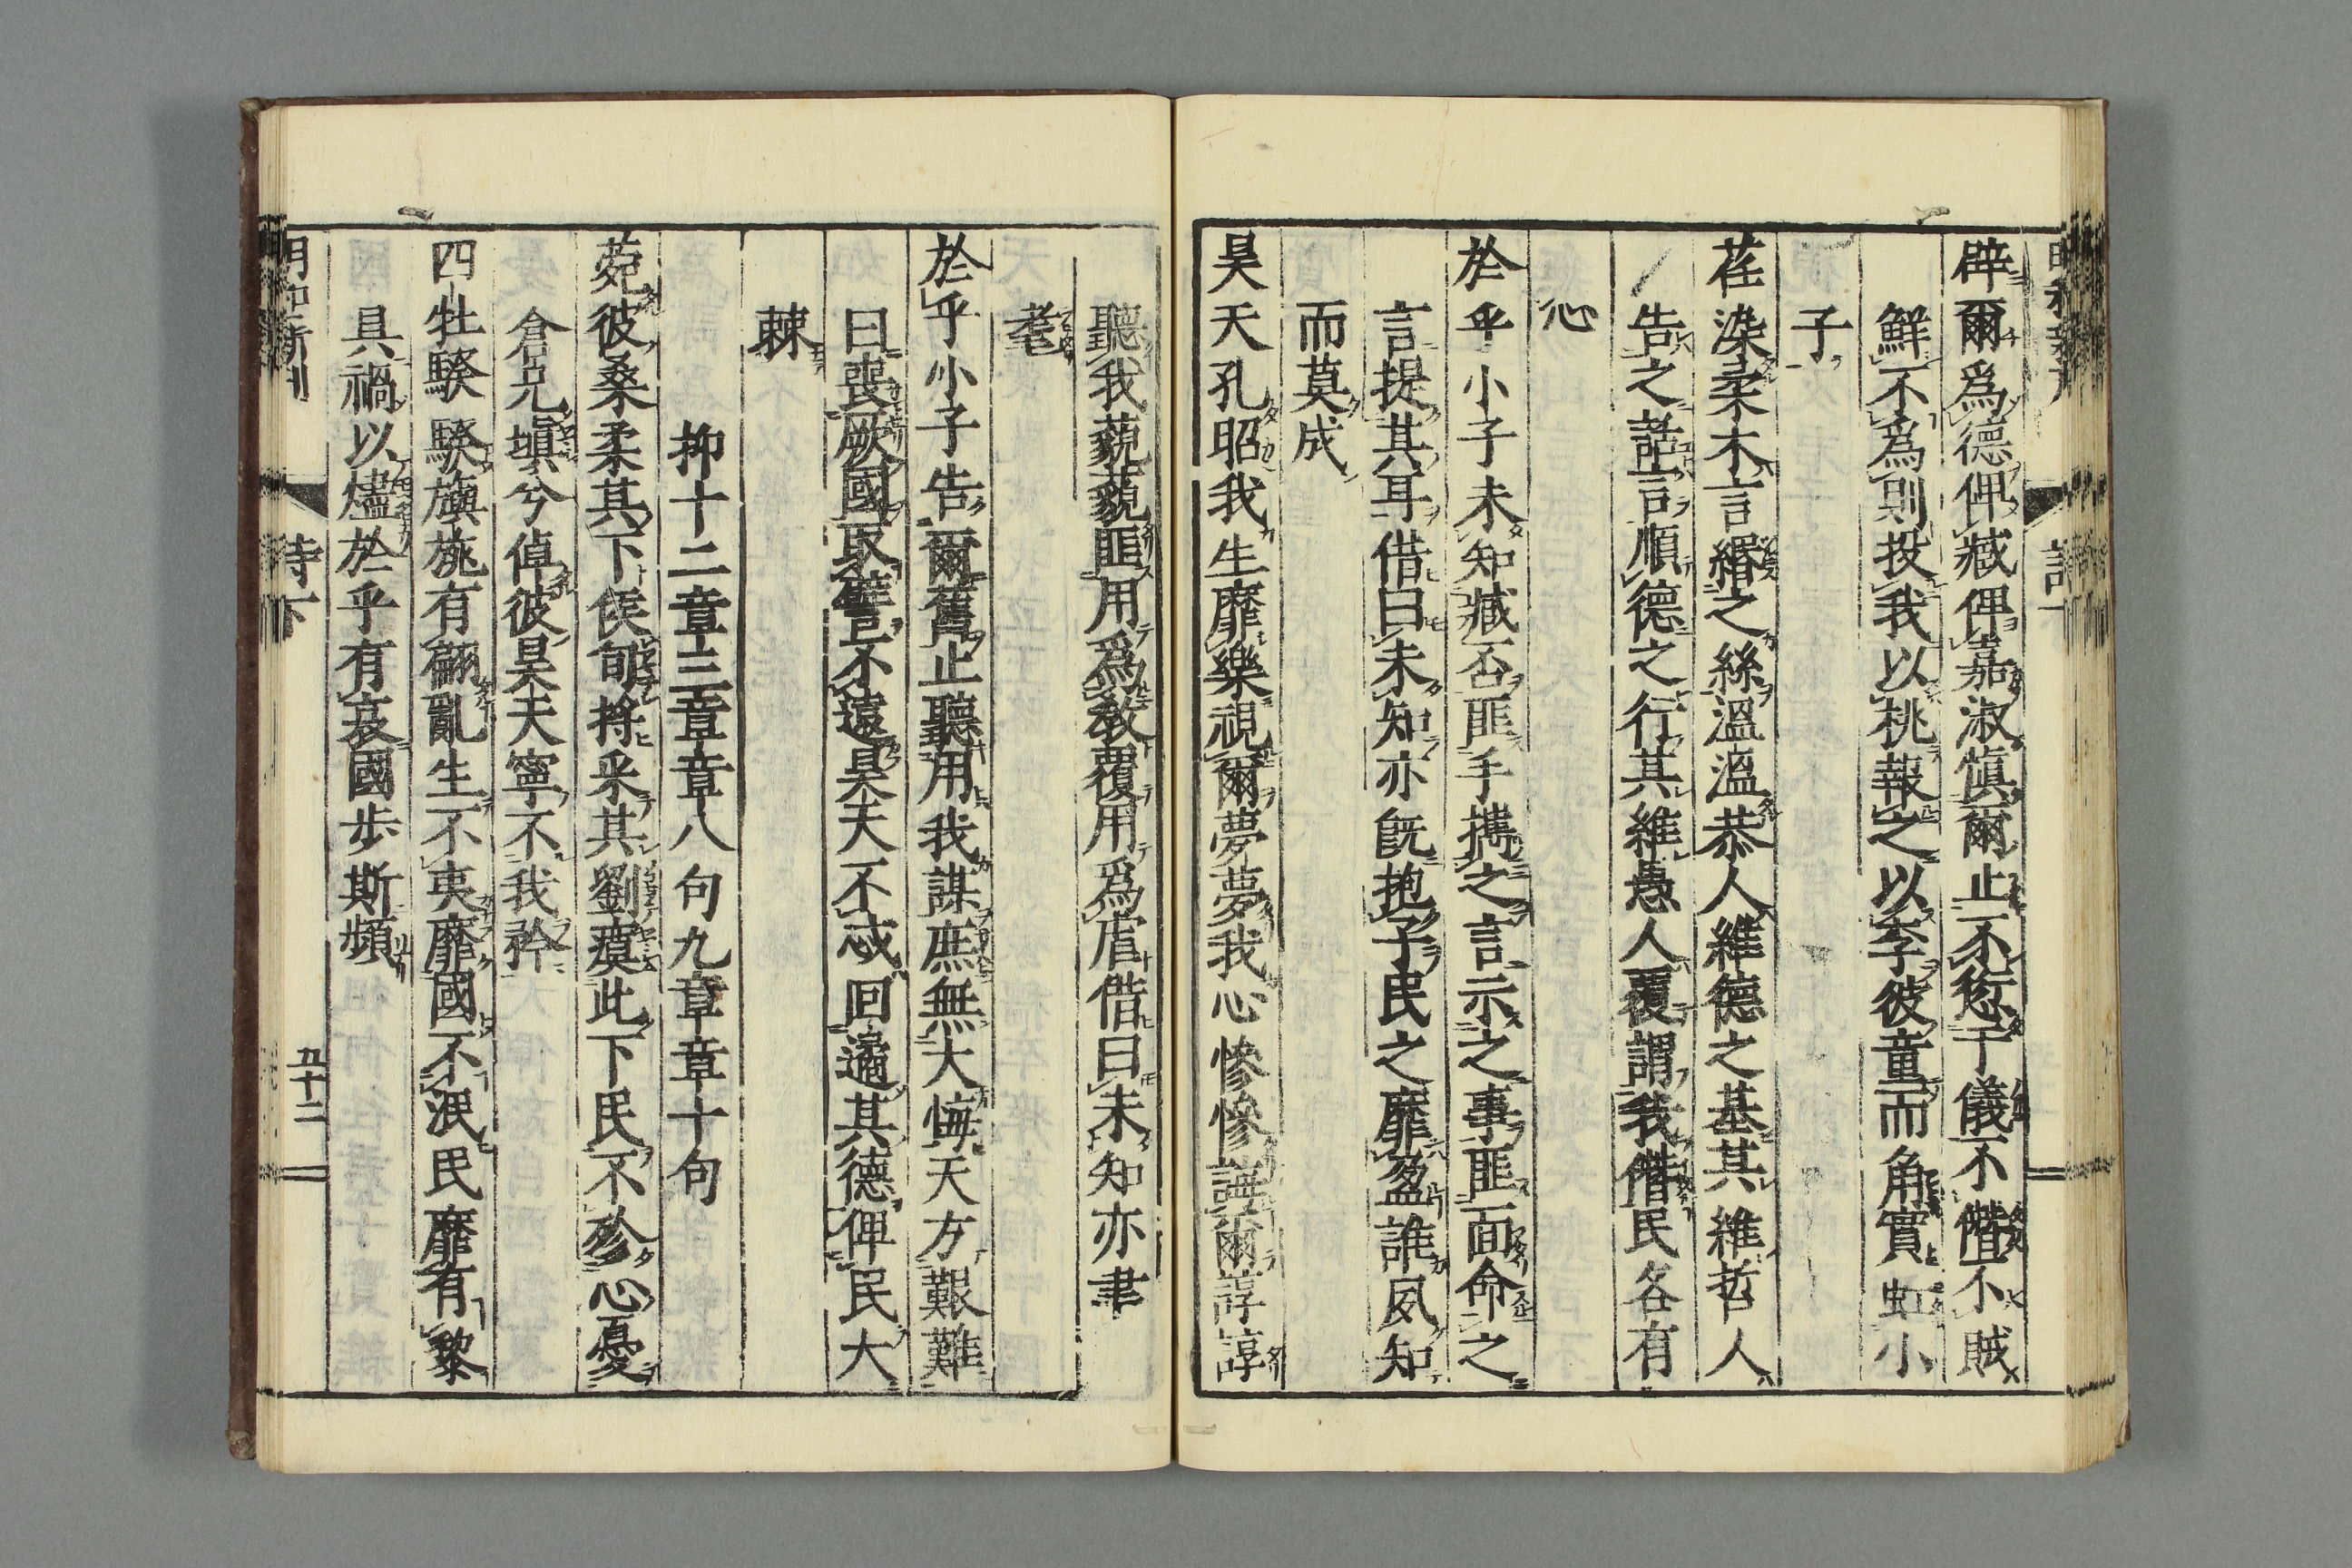 辟爾為德俾臧俾嘉淑愼爾止不愆于儀不僭不賊
鮮不為則投我以桃報之以李彼童而角實虹小
子
荏染柔木言緡之絲溫溫恭人維德之基其維哲人
告之話言順德之行其維愚人覆謂我僭民各有
心
於乎小子未知臧否匪手攜之言示之事匪面命之
言提其耳借曰未知亦旣抱子民之靡盈誰夙知
而莫成
昊天孔昭我生靡樂視爾夢夢我心慘慘誨爾諄諄
聽我藐藐匪用爲教覆用爲虐借曰未知亦聿
耄
於乎小子告爾舊止聽用我謀庶無大悔天方艱難
曰喪厥國取譬不遠昊天不忒回遹其德俾民大
棘
抑十二章三章章八句九章章十句
菀彼桑柔其下侯旬捋采其劉瘼此下民不殄心憂
倉兄塡兮倬彼昊天寧不我矜
四牡騤騤旟旐有翩亂生不夷靡國不泯民靡有黎
具禍以燼於乎有哀國步斯頻
詩下
五十二